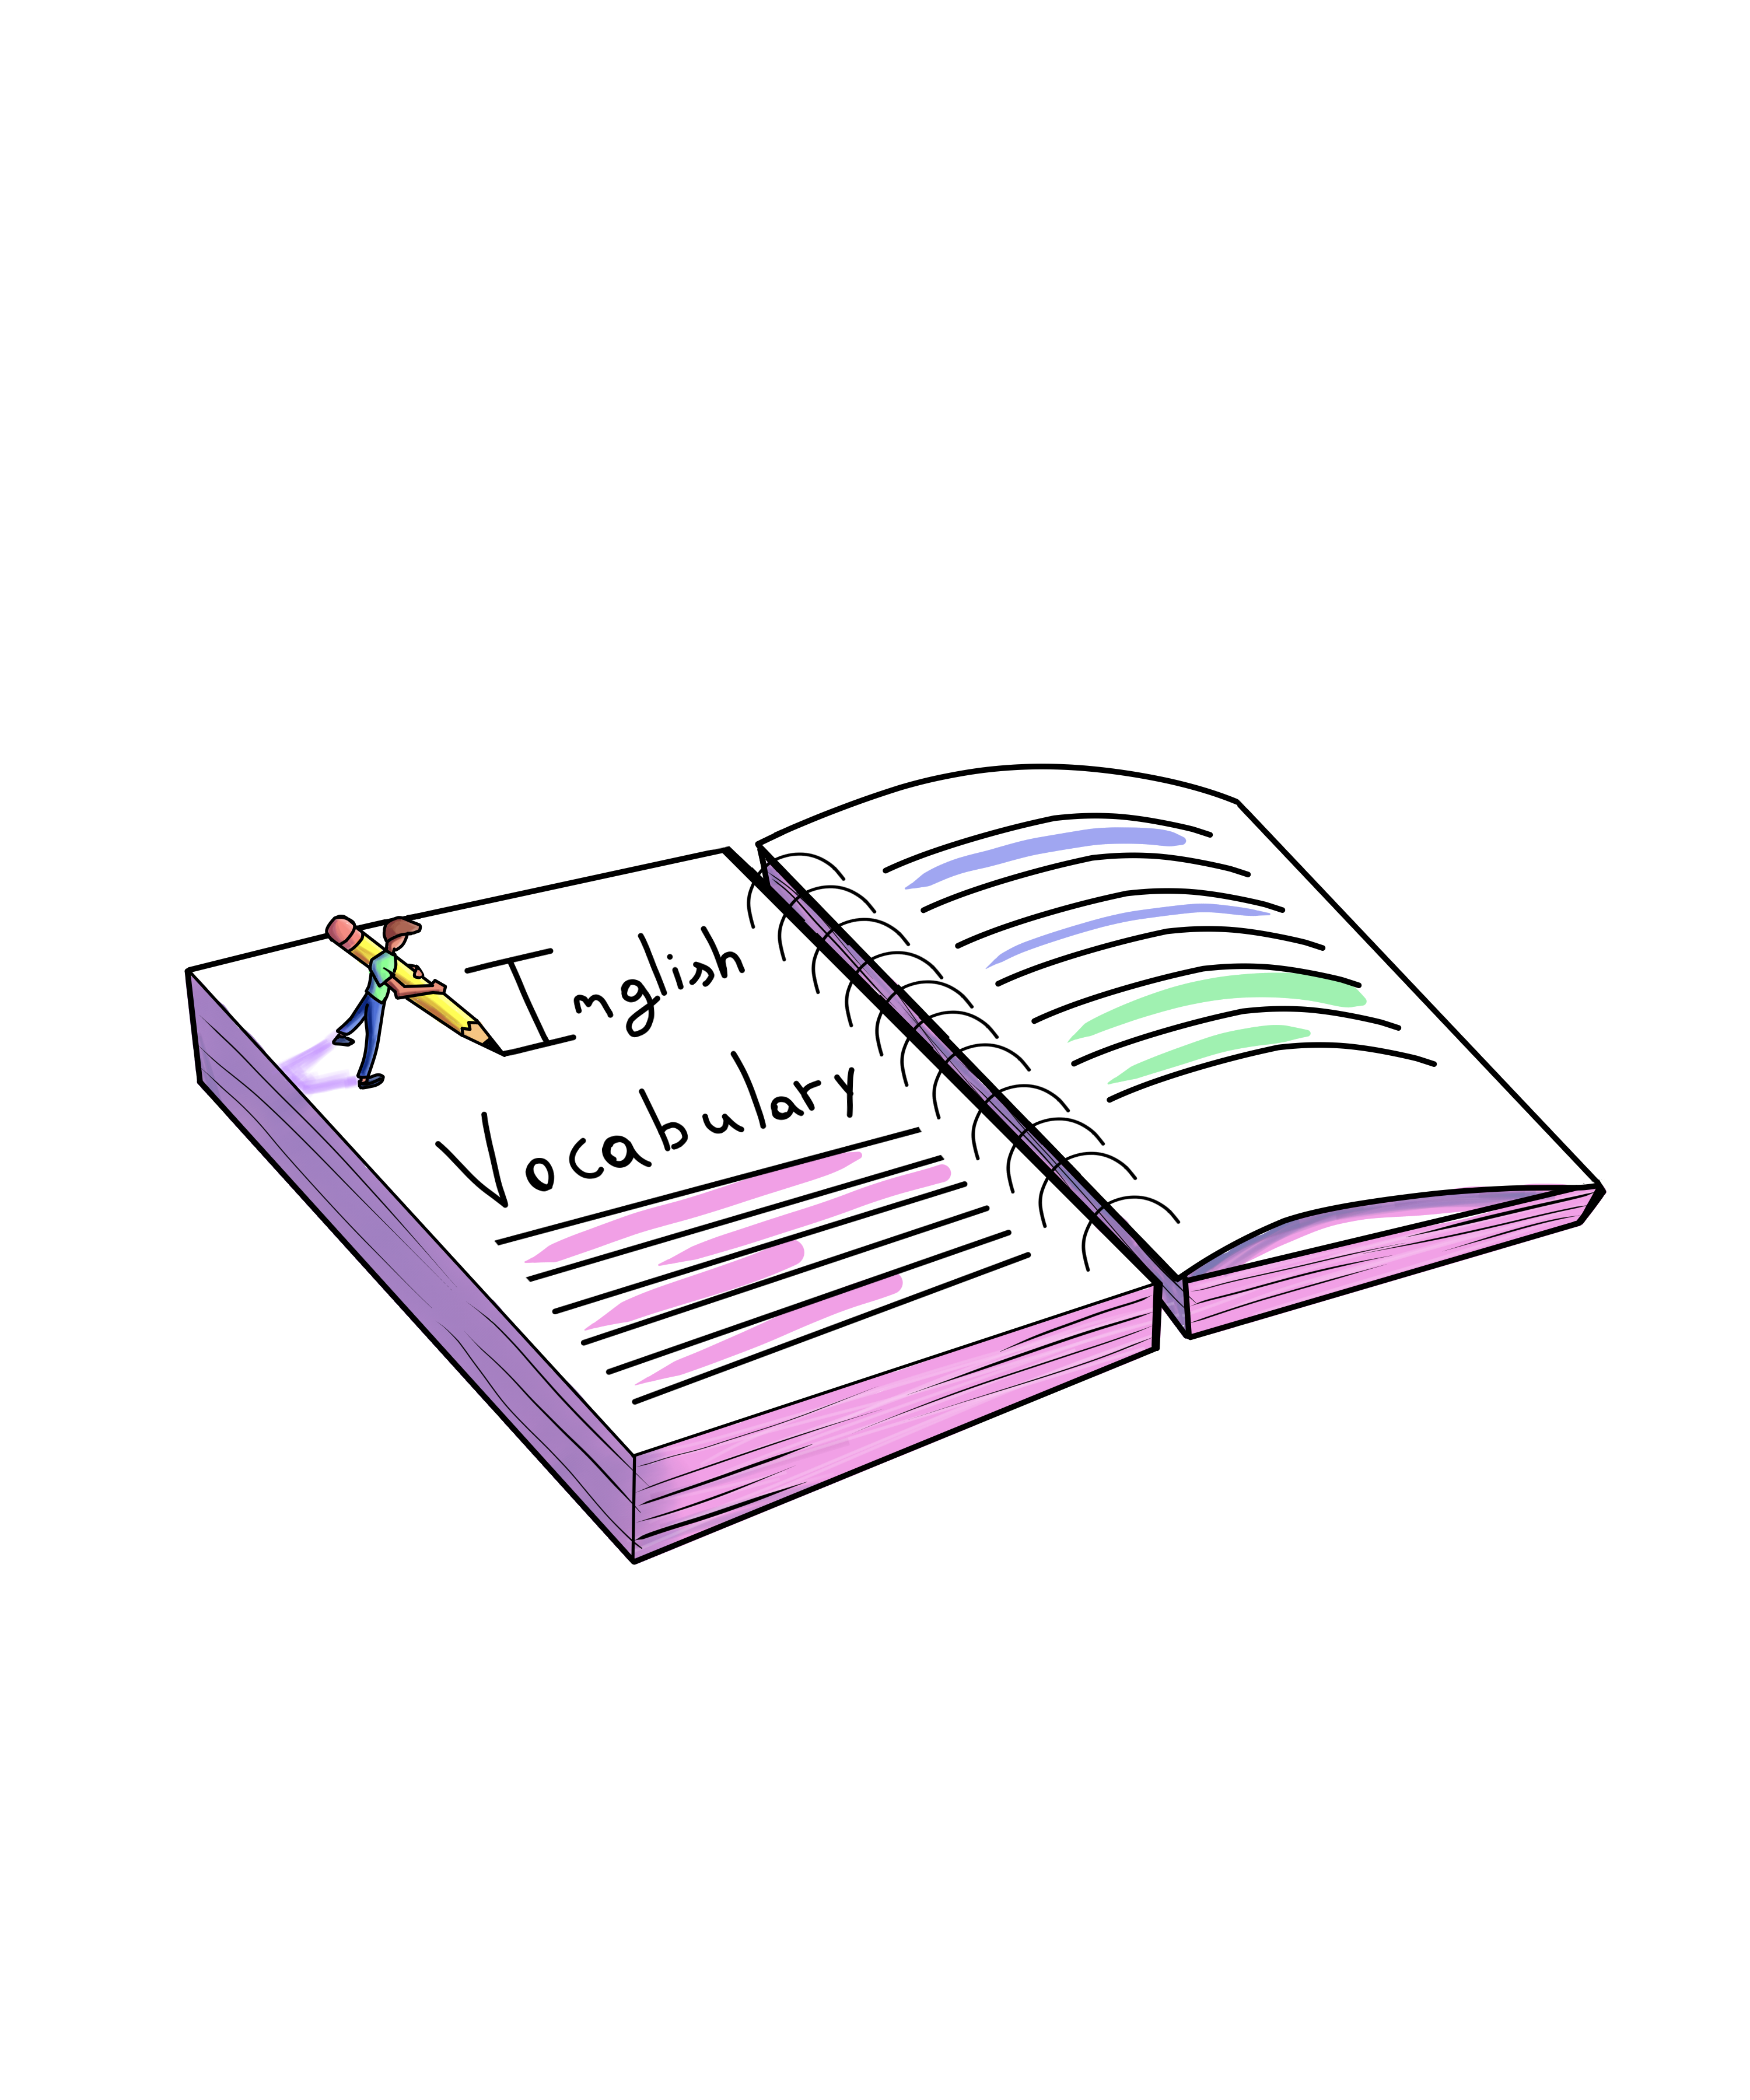 Inglish
Vocabulary